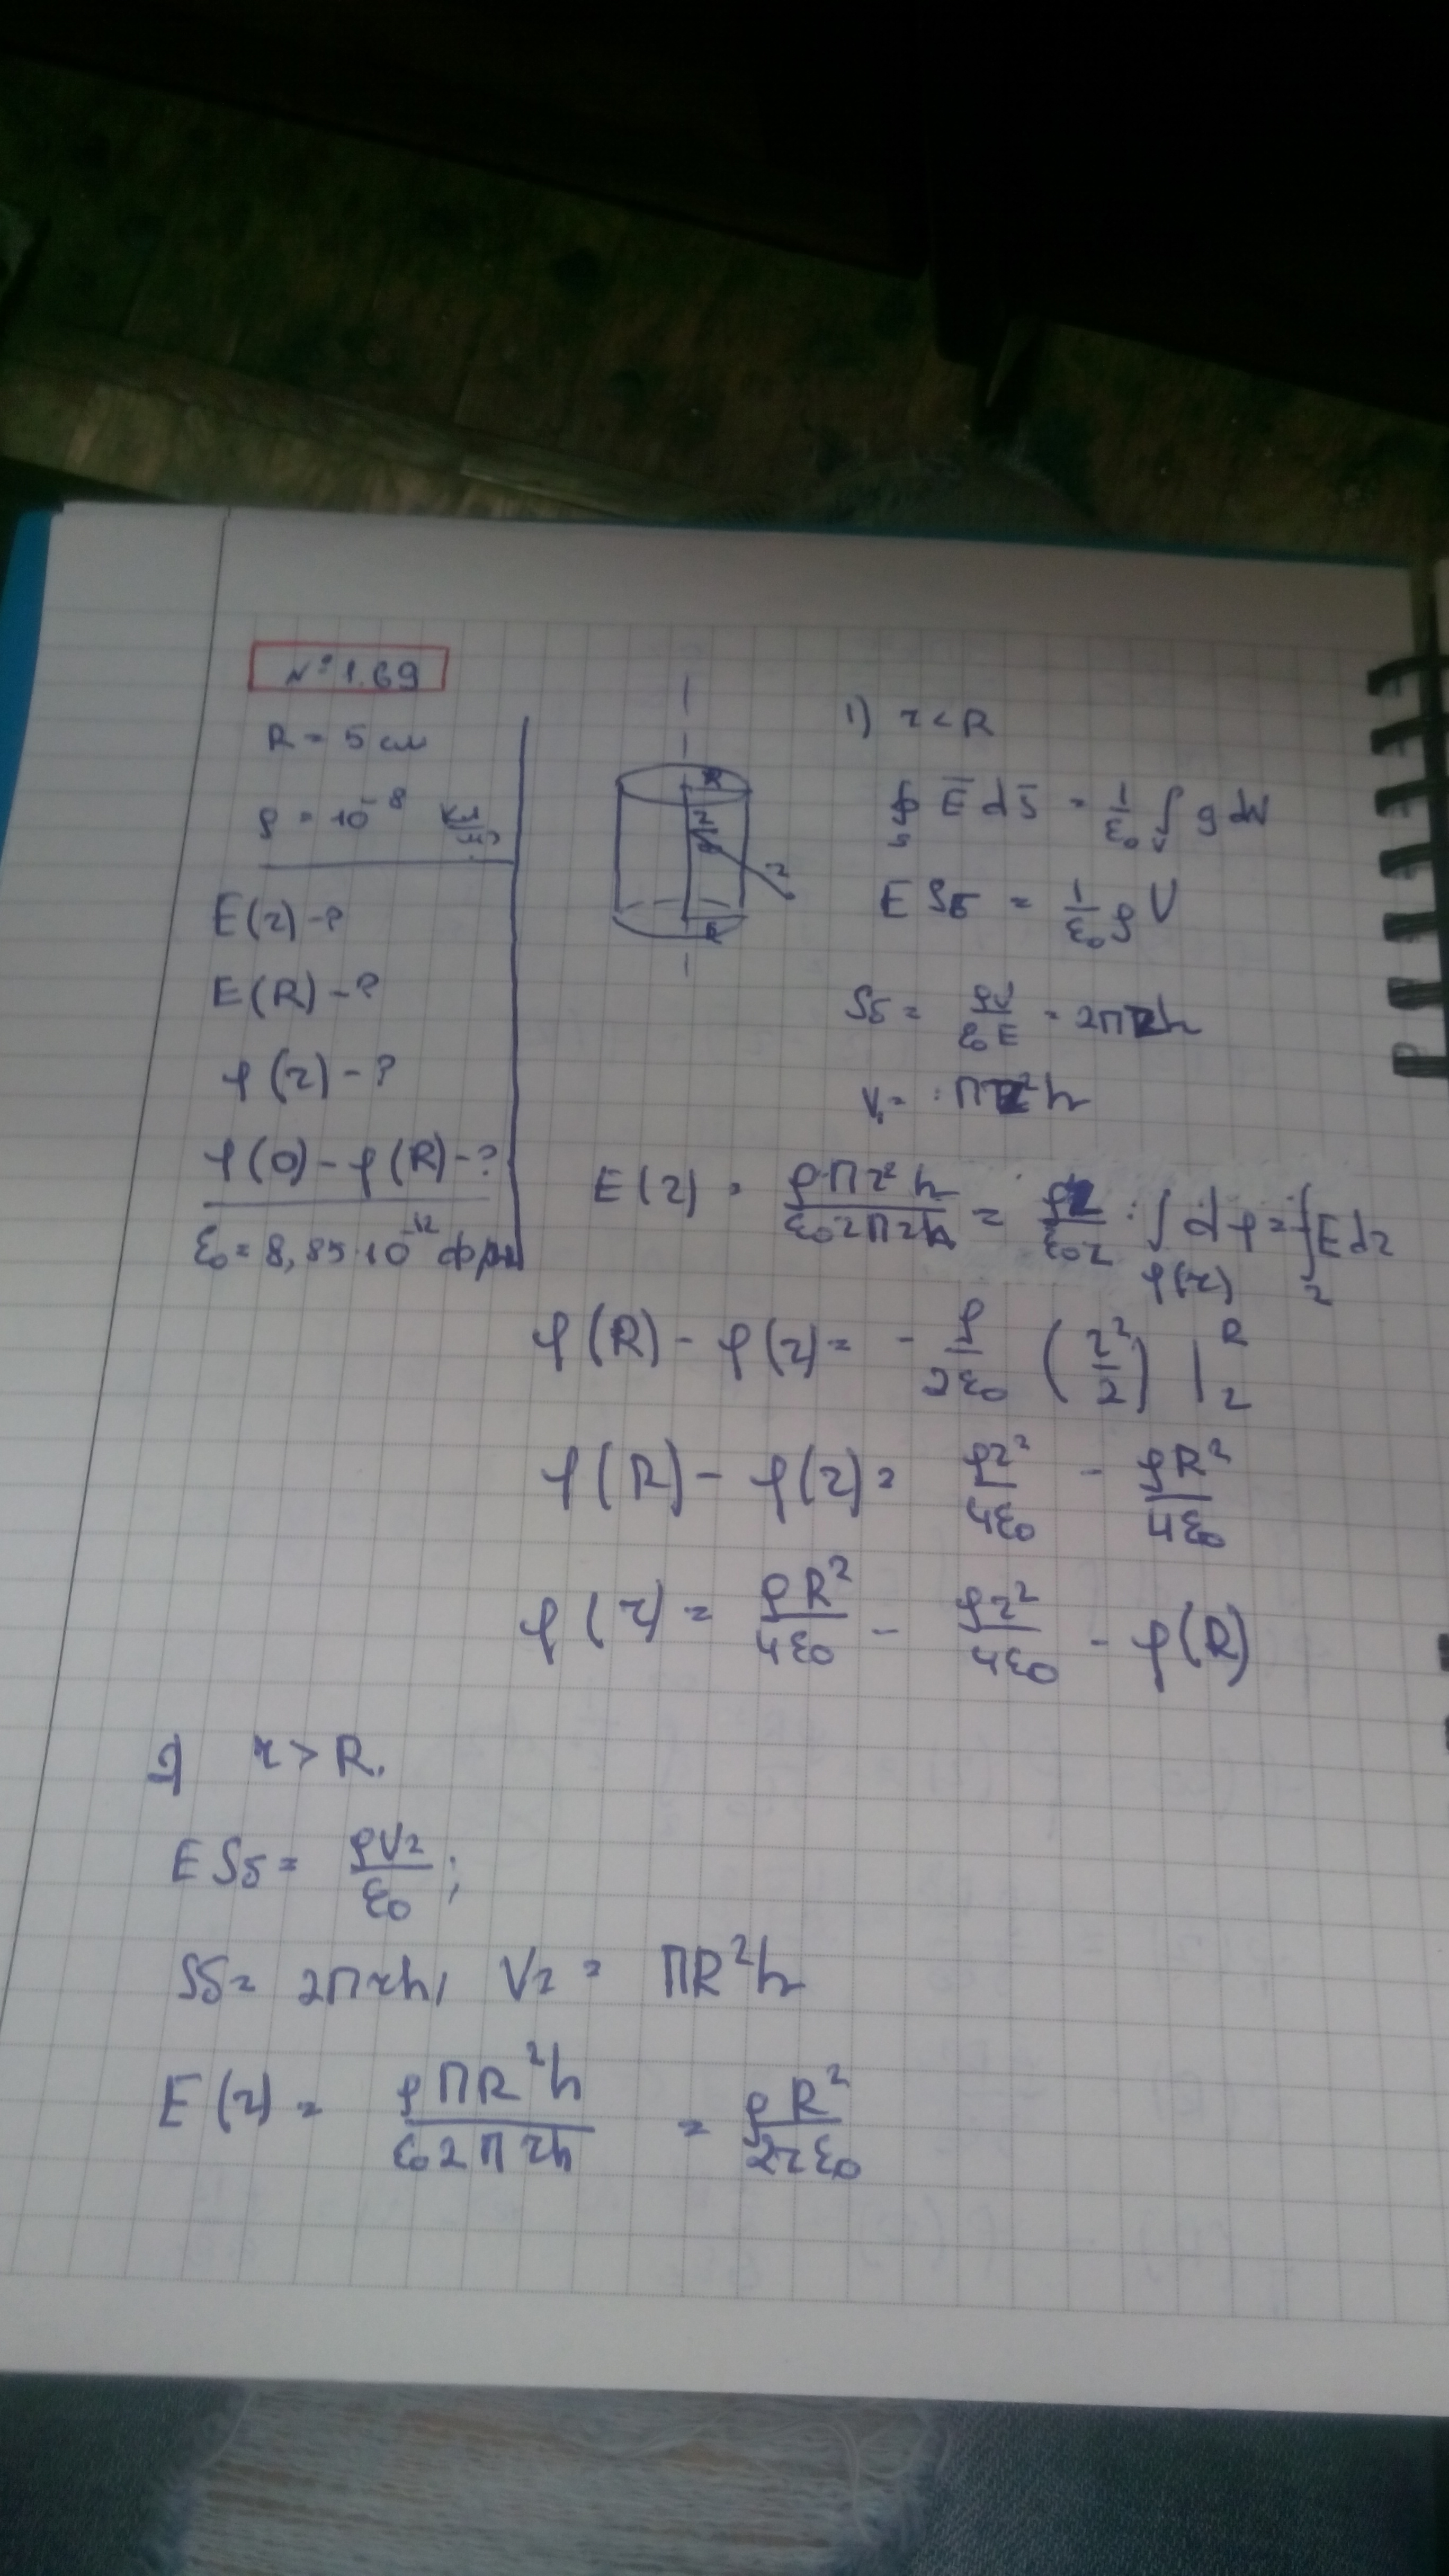 № 1.69
R = 5 см
ρ = 10⁻⁸
E(r) - ?
E(R) - ?
φ(r) - ?
φ(0) - φ(R) - ?
ε₀ = 8,85·10⁻¹²
R
r
R
1) r < R
∮ₛ E̅ dS̅ = 1/ε₀ ∫ᵥ ρ dV
E Sб = 1/ε₀ ρ V
Sб = ρV/ε₀E = 2πrh
V₁ = πr²h
E(r) = ρπr²h/ε₀2πrh = ρr/ε₀2 : ∫ dφ = -∫ E dr
φ(r) r
φ(R) - φ(r) = - ρ/2ε₀ (r²/2) |ᴿᵣ
φ(R) - φ(r) = ρr²/4ε₀ - ρR²/4ε₀
φ(r) = ρR²/4ε₀ - ρr²/4ε₀ - φ(R)
2) r > R.
E Sб = ρV₂/ε₀ ;
Sб = 2πrh, V₂ = πR²h
E(r) = ρπR²h/ε₀2πrh = ρR²/2rε₀